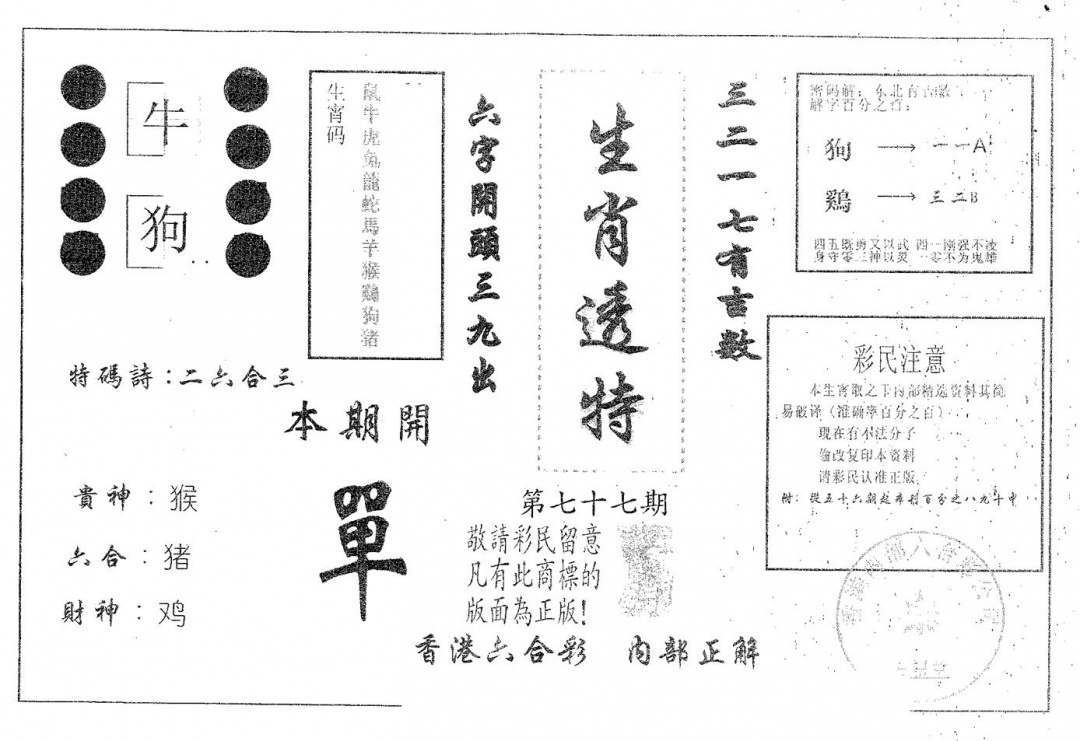 牛
狗
生宵码
鼠牛虎兔龍蛇馬羊猴鷄狗猪
六字開頭三九出
生肖透特
三二一七有吉数
密码解：东北有吉数
解字百分之百：
狗 → 一一A
鷄 → 三二B
四五既勇又以武 四一刚强不凌
身守零三神以灵 一零不为鬼雄
特碼詩：二六合三
本期開
單
貴神：猴
六合：猪
財神：鸡
第七十七期
敬請彩民留意
凡有此商標的
版面為正版！
香港六合彩 内部正解
彩民注意
本生宵取之于内部精选资料其简
易破译（准确率百分之百）
现在有不法分子
偷改复印本资料
请彩民认准正版